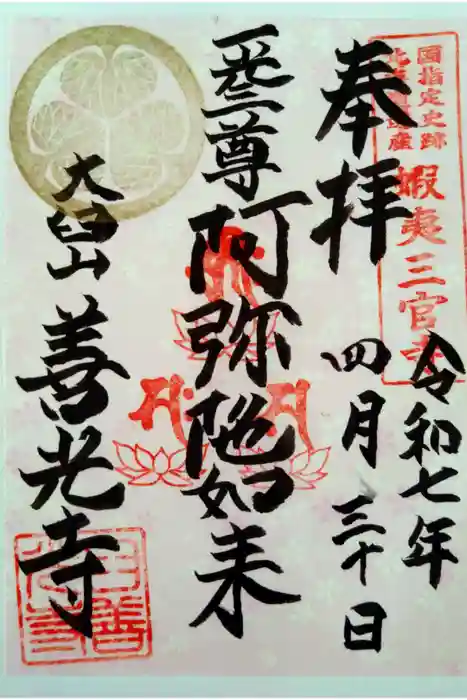 奉拝
国指定史跡
北海道遺産
蝦夷三官寺
令和七年
四月三十日
一光三尊
阿弥陀如来
大臼山
善光寺